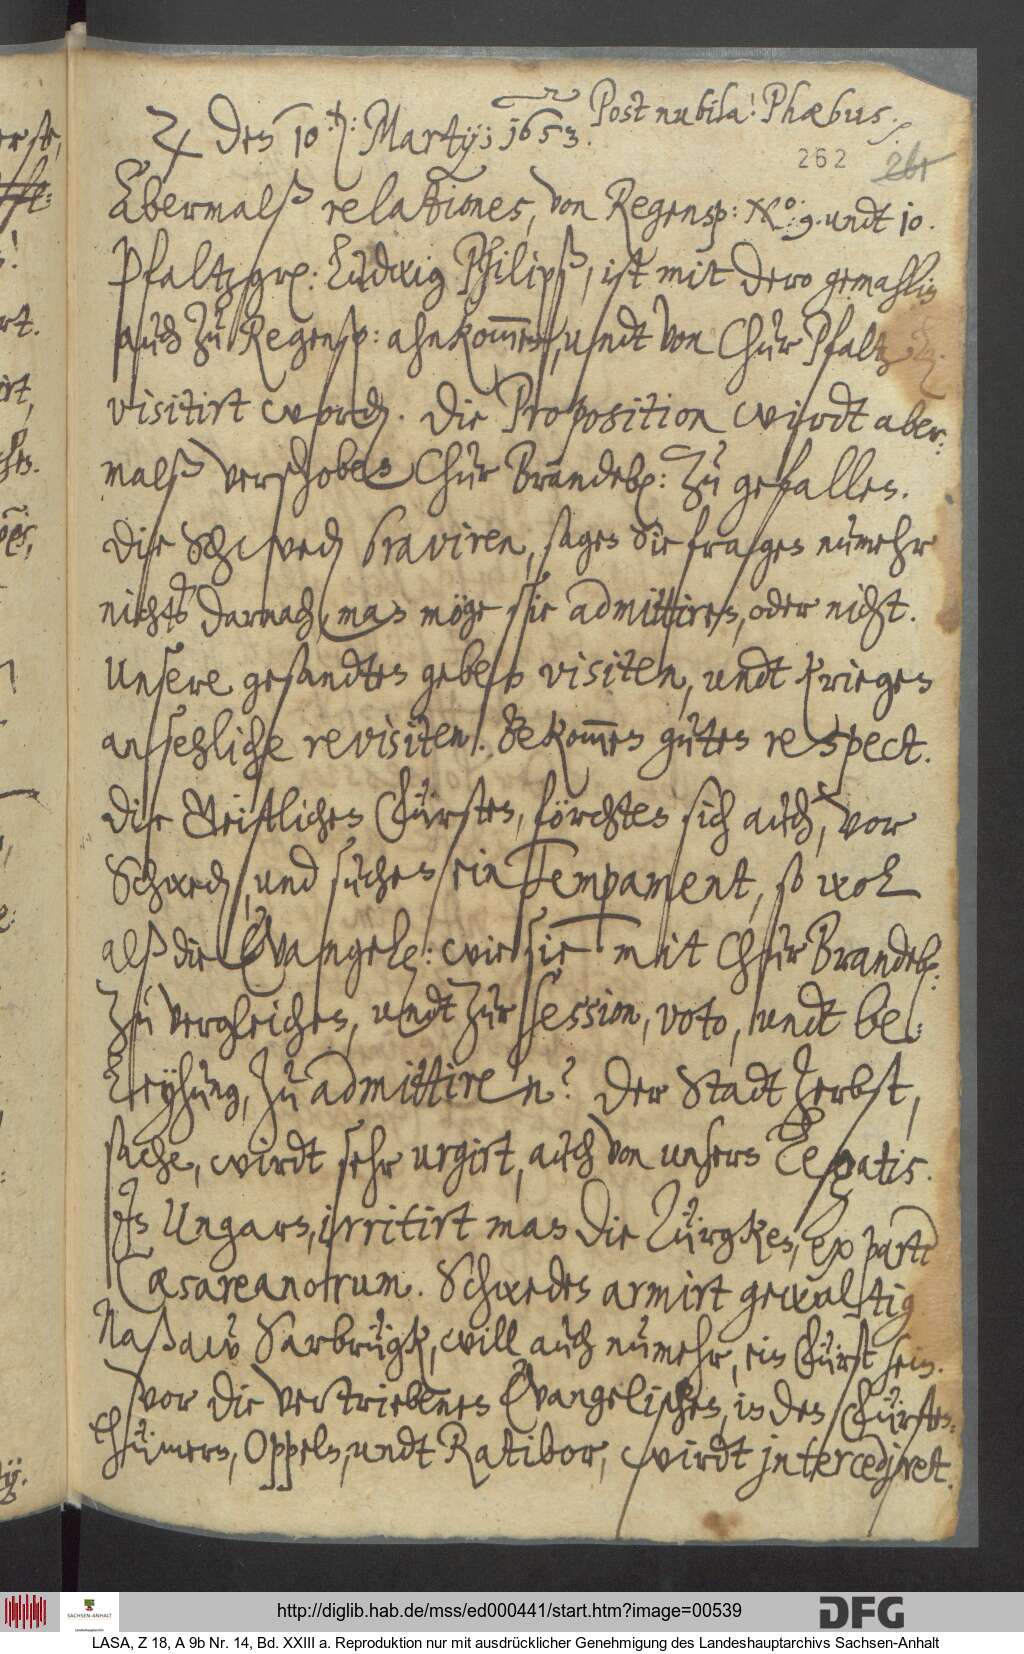 ♃ den 10.ten: Martij; 1653. Post nubila! Phœbus.
262 261
Abermalß relationes, von Regensp: No: 9. undt 10.
Pfaltzgr: Ludwig Philipß, ist mit dero gemahlin
auch zu Regensp: ahnkommen, undt von Chur Pfaltz
visitirt worden. Die Proposition wirdt aber¬
malß verschoben Chur Brandeb: zu gefallen.
Die Schweden braviren, sagen Sie fragen numehr
nichts darnach, man möge sie admittiren, oder nicht.
Unsere gesandten geben visiten, undt kriegen
ansehliche revisiten. Bekommen guten respect.
Die Geistlichen Fürsten, förchten sich auch, vor
Schweden, und suchen ein Temperament, so wol
alß die Evangel: wie sie mit Chur Brandeb:
zu vergleichen, undt zur session, voto, undt be¬
leyhung, zu admittiren? Der Stadt Zerbst,
sache, wirdt sehr urgirt, auch von unsern Legatis.
In Ungarn, irritirt man die Türgken, ex parte
Cæsareanorum. Schweden armirt gewaltig
Naßaw Sarbrügk, will auch numehr, ein Fürst sein.
vor die vertriebenen Evangelischen, in den Fürsten¬
thümern, Oppeln, undt Ratibor, wirdt intercediret.
http://diglib.hab.de/mss/ed000441/start.htm?image=00539
DFG
SACHSEN-ANHALT
LASA, Z 18, A 9b Nr. 14, Bd. XXIII a. Reproduktion nur mit ausdrücklicher Genehmigung des Landeshauptarchivs Sachsen-Anhalt